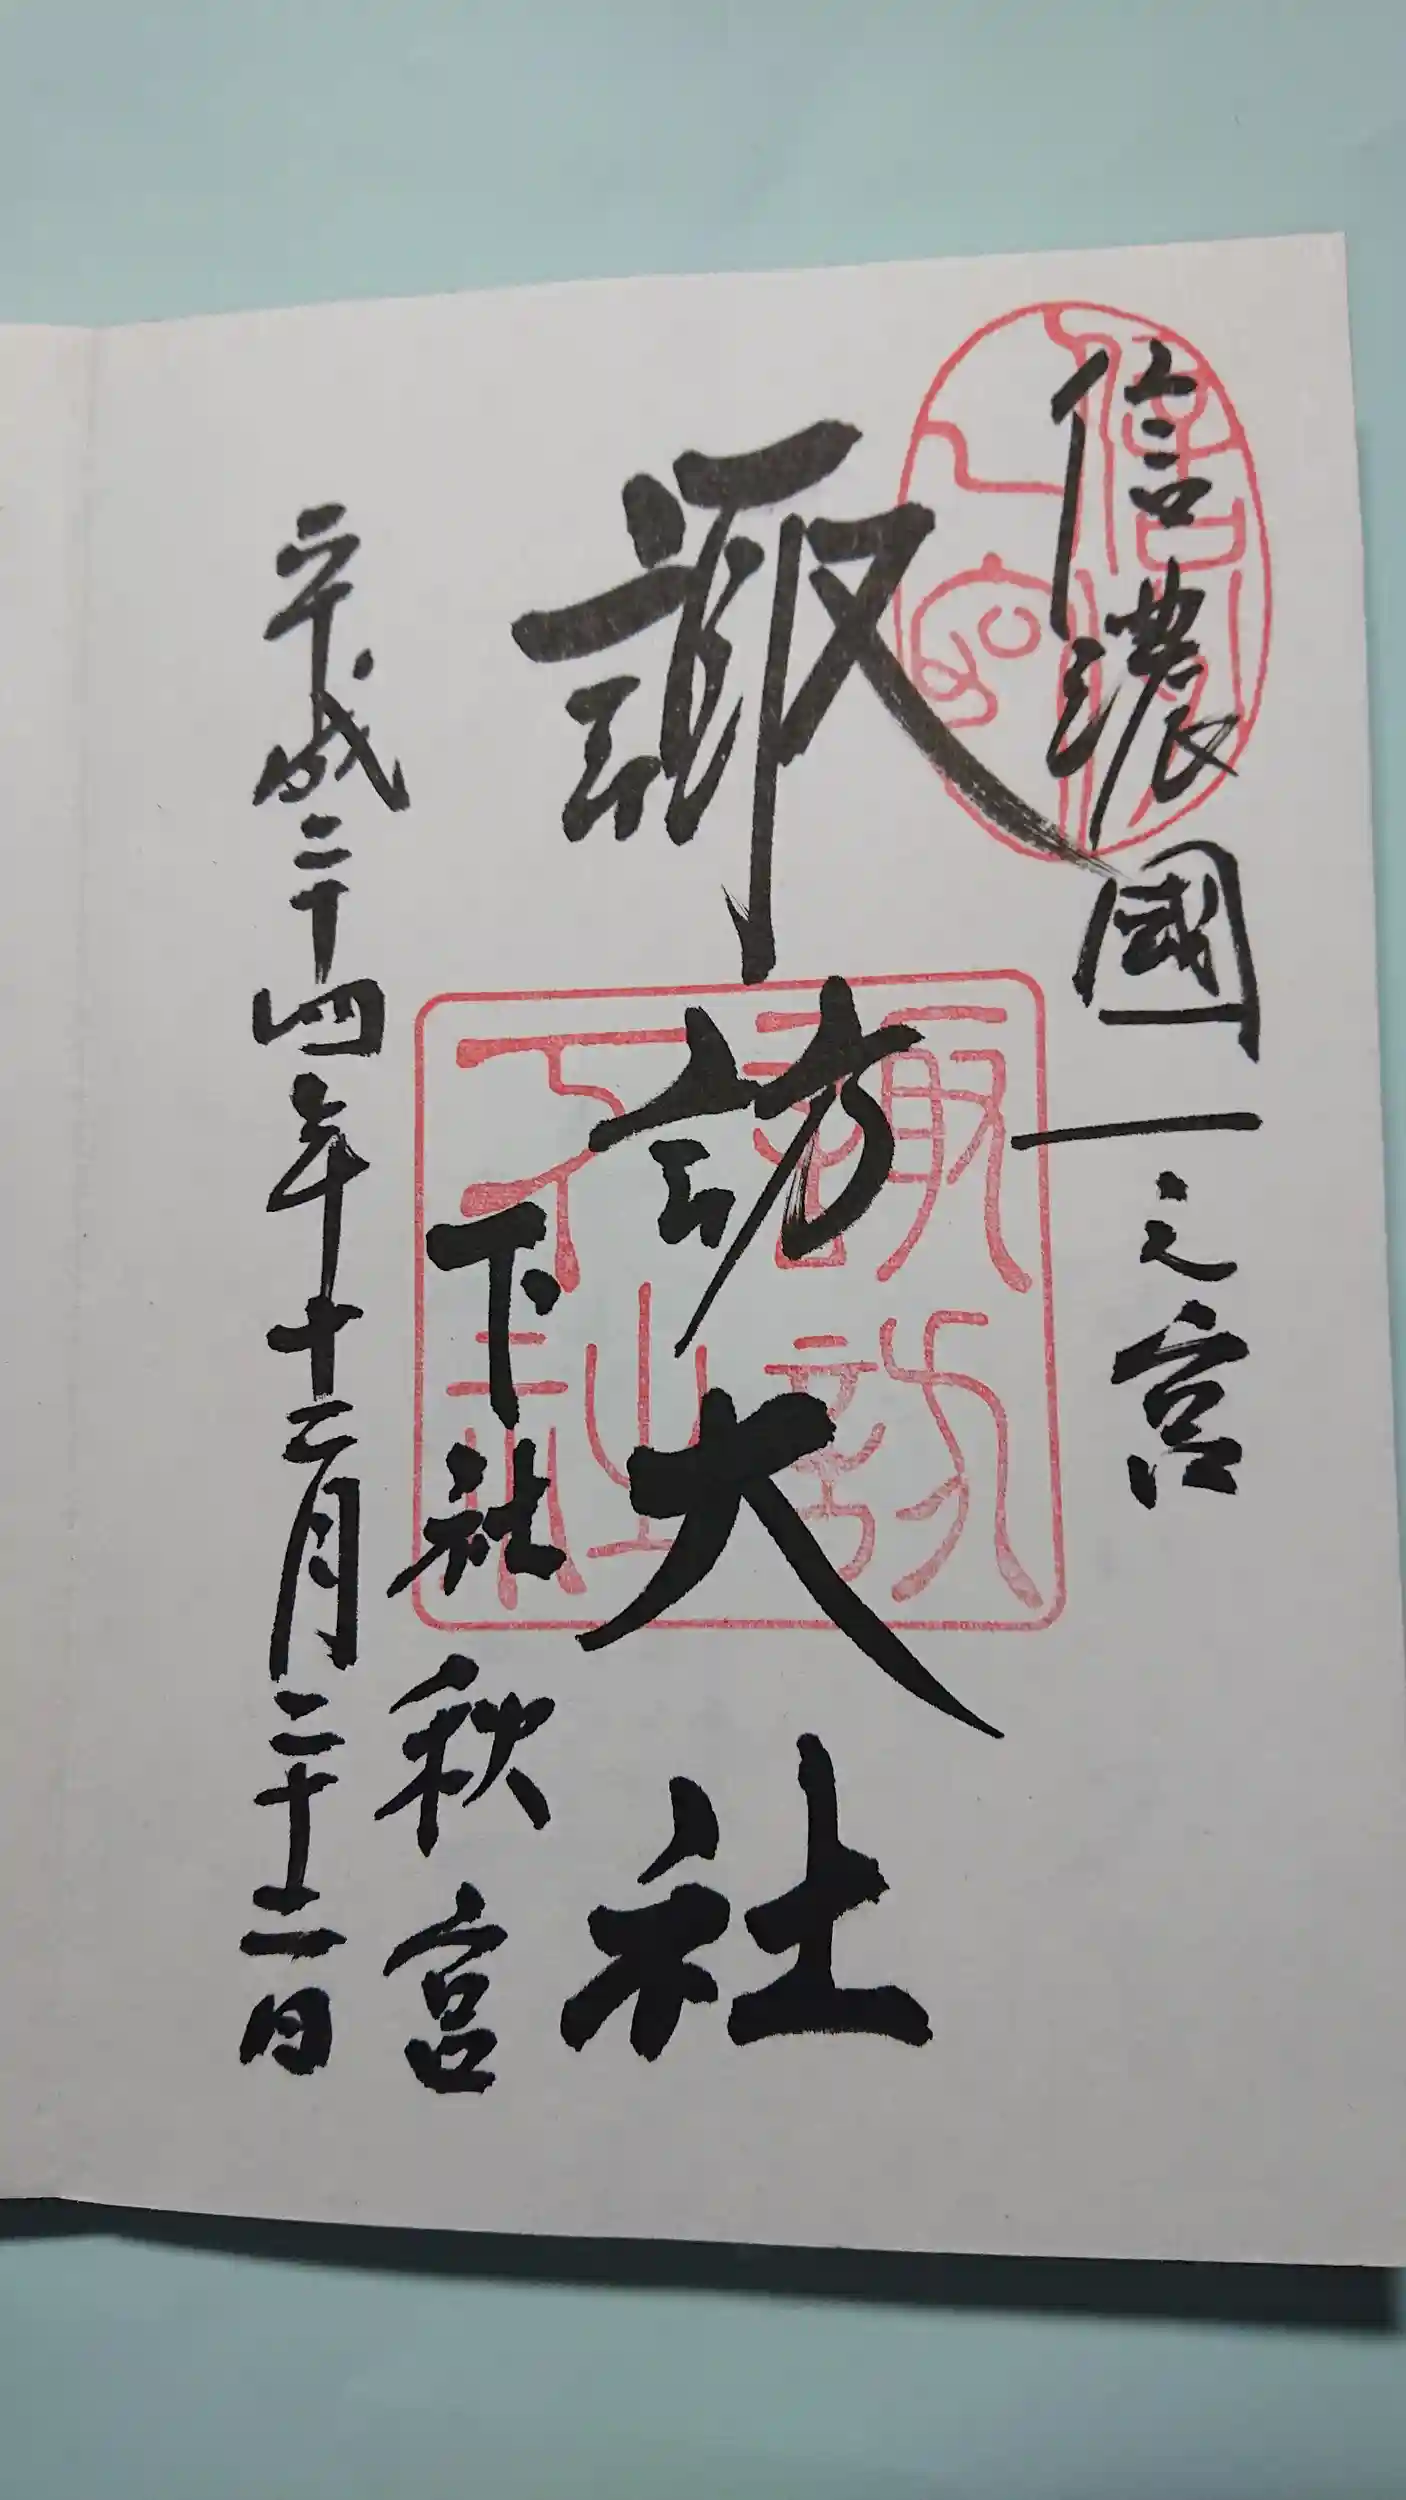 信濃國一之宮
諏訪大社
下社秋宮
平成二十四年十二月二十二日
諏訪下社